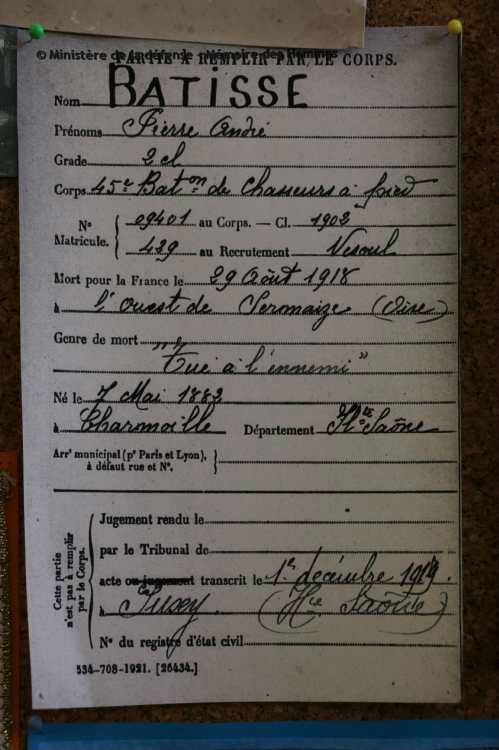 © Ministère de la défense - Mémoire des Hommes
PARTIE A REMPLIR PAR LE CORPS.
Nom BATISSE
Prénoms Pierre André
Grade 2 cl
Corps 45e Baton de Chasseurs à pied
No Matricule. { 09401 au Corps. — Cl. 1902
429 au Recrutement Vesoul
Mort pour la France le 29 Août 1918
à l'ouest de Sermaize (Oise)
Genre de mort
"Tué à l'ennemi"
Né le 7 Mai 1882
à Charmoille Département Hte Saône
Arrt municipal (pr Paris et Lyon),
à défaut rue et No.
Cette partie n'est pas à remplir par le Corps.
Jugement rendu le
par le Tribunal de
acte ou jugement transcrit le 1er décembre 1919.
à (Hte Saône)
No du registre d'état civil
534-708-1921. [26434.]